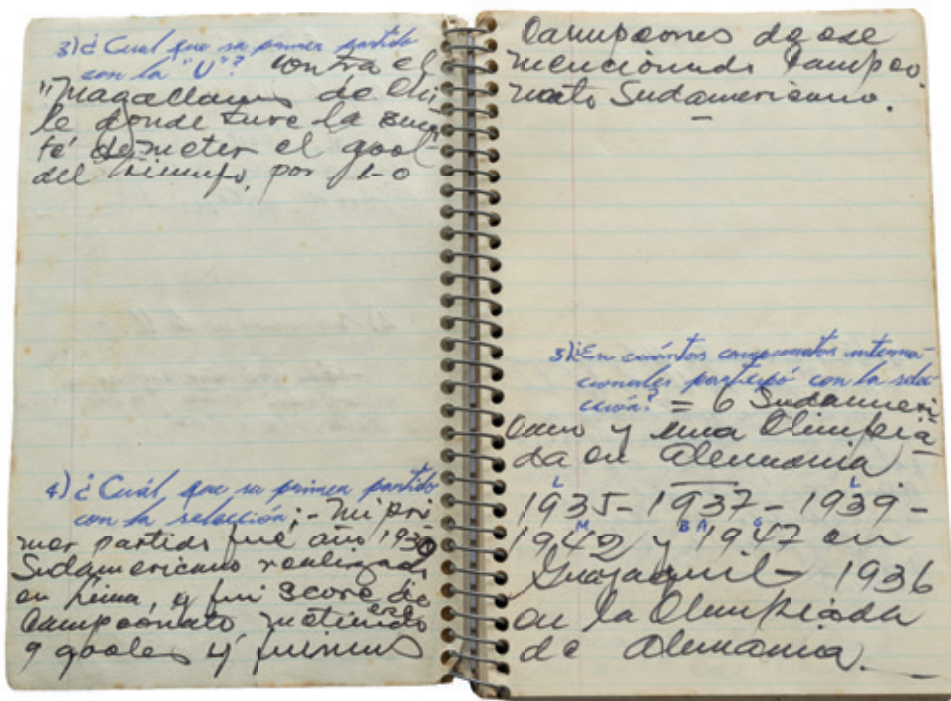 3) ¿Cual fue su primer partido
con la "U"? contra el
"Magallanes de Chi
le donde tuve la suer
te de meter el gool
del triunfo, por 1-0
4) ¿Cuál, fue su primer partido
con la selección; - Mi pri
mer partido fué año 1939
Sudamericano realizado
en Lima, y fui score de
Campeonato metiendo
9 gooles y fuimos
Campeones de ese
mencionado Campeo
nato Sudamericano.
5) ¿En cuántos campeonatos interna-
cionales participó con la selec-
ción? = 6 Sudameri
cano y una Olimpia
da en Alemania
L L
1935 - 1937 - 1939 -
M BA G
1942 y 1947 en
Guayaquil - 1936
en la Olimpiada
de Alemania.